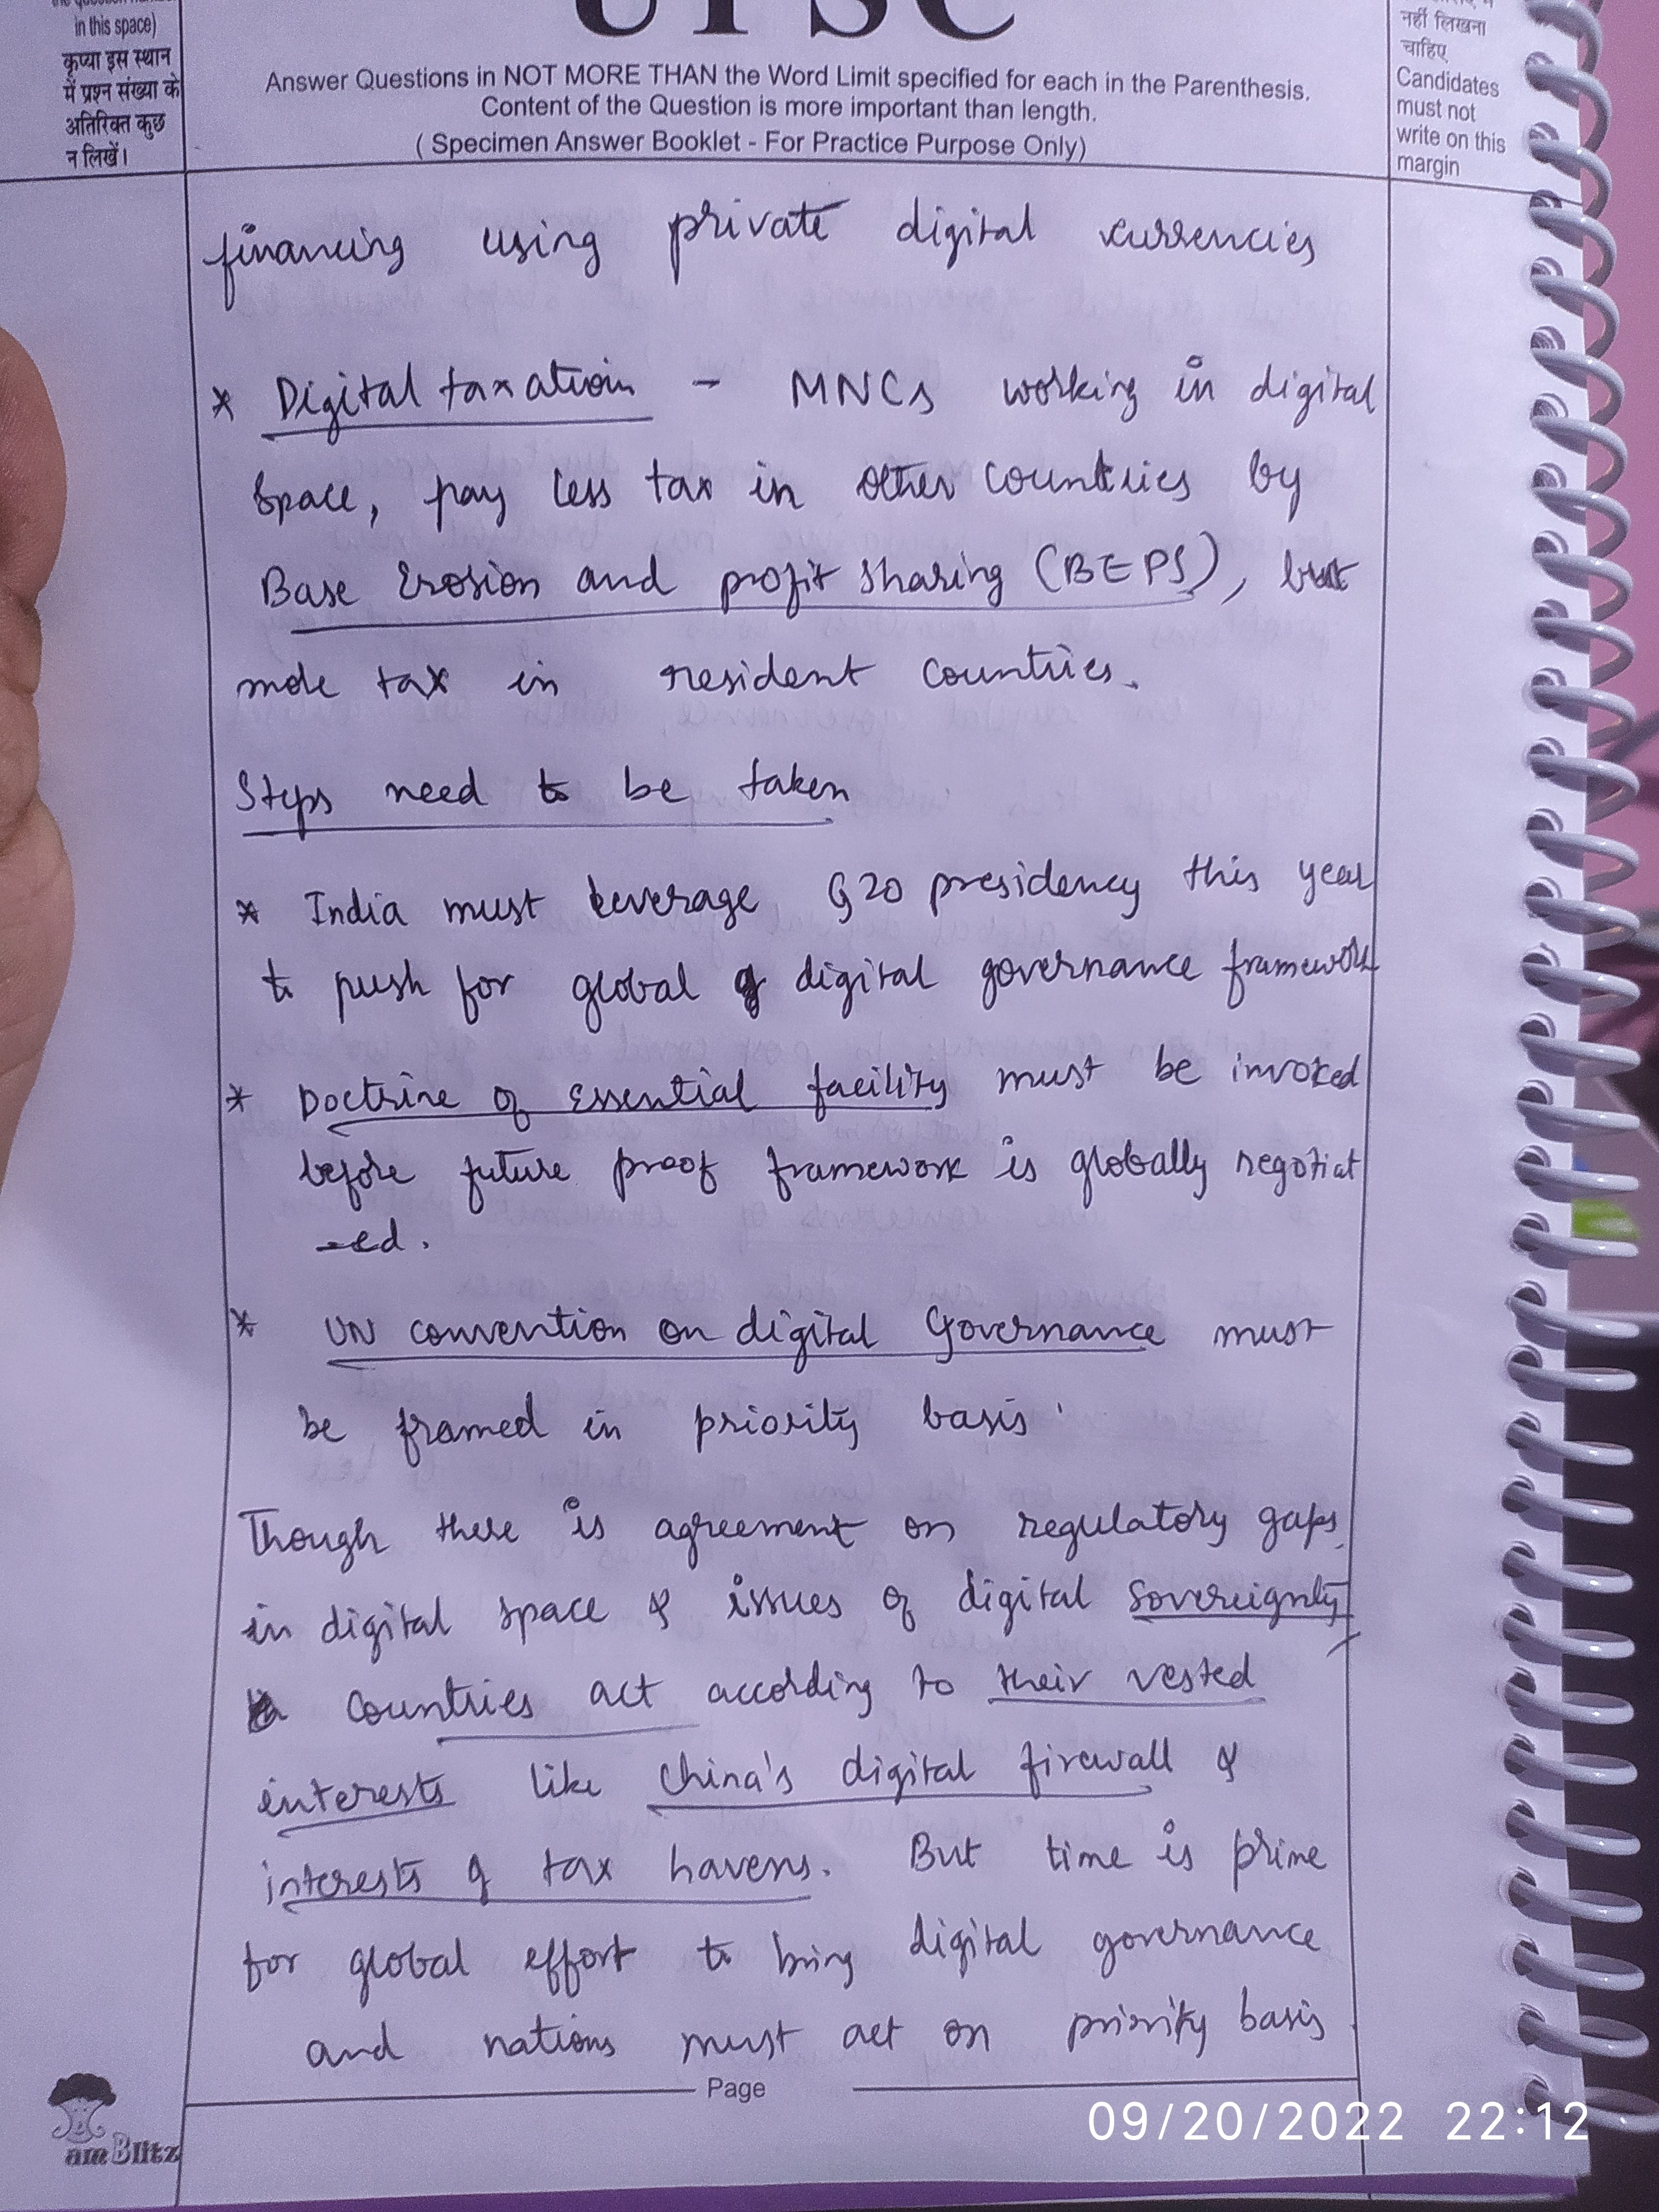 in this space)
कृप्या इस स्थान
में प्रश्न संख्या के
अतिरिक्त कुछ
न लिखें।
UPSC
Answer Questions in NOT MORE THAN the Word Limit specified for each in the Parenthesis.
Content of the Question is more important than length.
( Specimen Answer Booklet - For Practice Purpose Only)
नहीं लिखना
चाहिए
Candidates
must not
write on this
margin
financing using private digital currencies
* Digital taxation - MNCs working in digital
space, pay less tax in other countries by
Base Erosion and profit sharing (BEPS), but
more tax in resident countries.
Steps need to be taken
* India must leverage G20 presidency this year
to push for global digital governance framework
* Doctrine of Essential facility must be invoked
before future proof framework is globally negotiat
-ed.
* UN convention on digital Governance must
be framed in priority basis.
Though there is agreement on regulatory gaps
in digital space & issues of digital sovereignty,
countries act according to their vested
interests like China's digital firewall &
interests of tax havens. But time is prime
for global effort to bring digital governance
and nations must act on priority basis.
Page
am Blitz
09/20/2022 22:12